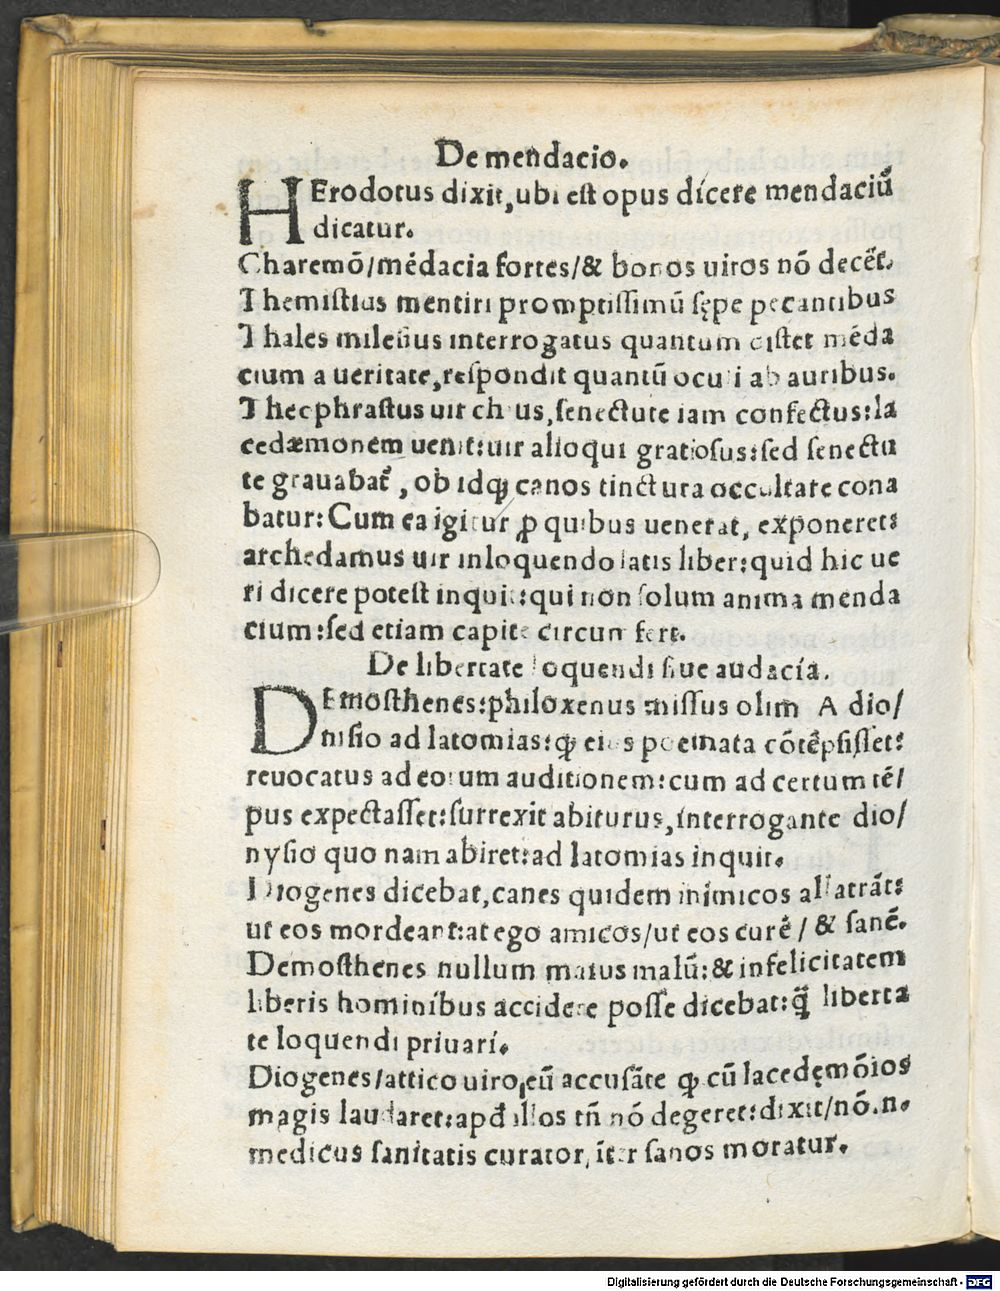 De mendacio.
HErodotus dixit, ubi est opus dicere mendaciū
dicatur.
Charemō/mēdacia fortes/& bonos uiros nō decēt.
Themistius mentiri promptissimū sępe peccantibus
Thales milesius interrogatus quantum distet mēda
cium a ueritate, respondit quantū oculi ab auribus.
Theophrastus uir chius, senectute iam confectus: la
cedæmonem uenit: uir alioqui gratiosus: sed senectu
te grauabat᷑, ob idqȝ canos tinctura occultare cona
batur: Cum ea igitur ꝓ quibus uenerat, exponeret:
archedamus uir inloquendo satis liber: quid hic ue
ri dicere potest inquit: qui non solum anima menda
cium: sed etiam capite circun fert.
De libertate loquendi siue audacia.
DEmosthenes: philoxenus missus olim A dio/
nisio ad latomias: ꝙ eius poemata cōtēpsisset:
reuocatus ad eorum auditionem: cum ad certum tē/
pus expectasset: surrexit abiturus, interrogante dio/
nysio quo nam abiret: ad latomias inquit.
Diogenes dicebat, canes quidem inimicos allatrāt:
ut eos mordeant: at ego amicos/ut eos curē/ & sanē.
Demosthenes nullum maius malū: & infelicitatem
liberis hominibus accidere posse dicebat: q̈ liberta
te loquendi priuari.
Diogenes/attico uiro, eū accusāte ꝙ cū lacedęmōios
magis laudaret: apđ illos tn̄ nō degeret: dixit/nō.n.
medicus sanitatis curator, īter sanos moratur.
Digitalisierung gefördert durch die Deutsche Forschungsgemeinschaft - DFG